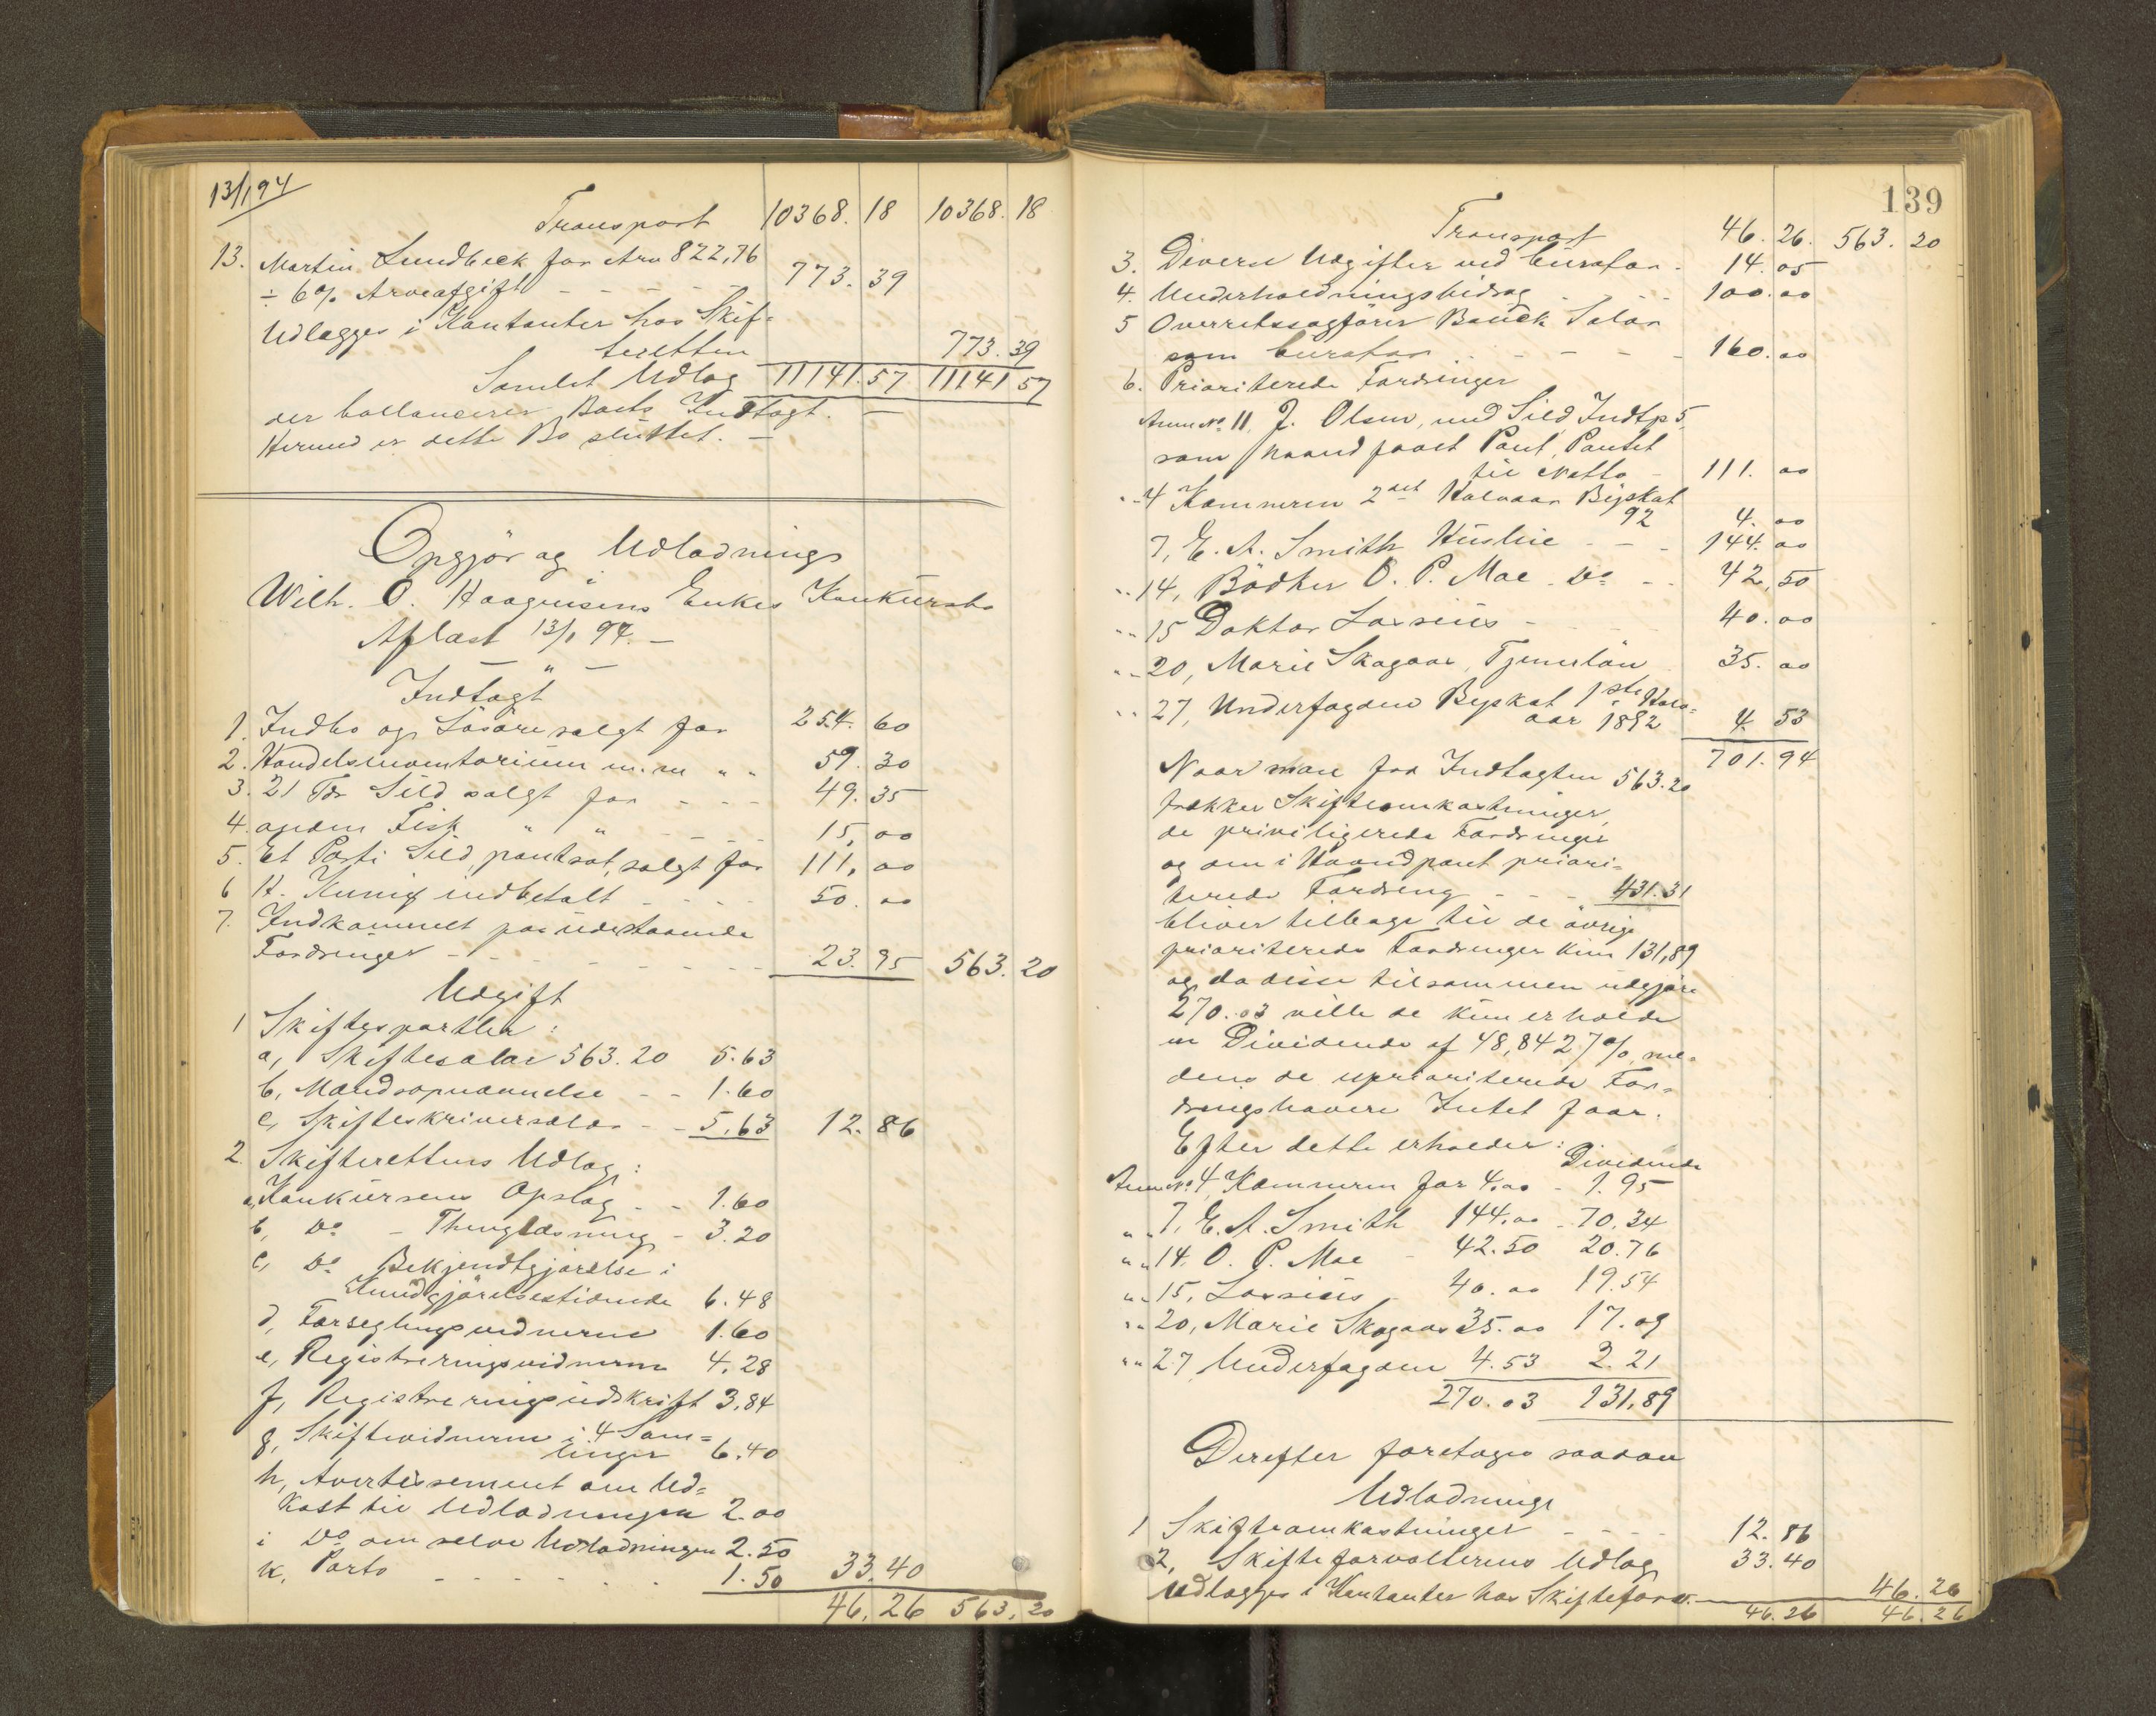 13/1 94
Transport 10368. 18 10368. 18
13. Martin Lundbeck for Arv 822,76
÷ 6% Arveafgift - - - - - 773. 39
Udlægges i Kontanter hos Skif-
teretten 773. 39
Samlet Udlæg 11141. 57 11141 57
der ballancerer Boets Indtægt. —
Hermed er dette Bo sluttet. —
Opgjör og Udlodning
i
Wilh. O. Haagensens Enkes Konkursbo
Aflæst 13/1 94. —
— " —
Indtægt
1. Indbo og Lösöre solgt for 254. 60
2. Handelsinventarium m. m " " 59. 30
3. 21 Tdr Sild solgt for - - - 49. 35
4. anden Fisk " " - - - 15, 00
5. Et Parti Sild, pantsat, solgt for 111, 00
6 H. Kunig indbetalt - - - - 50. 00
7. Indkommet paa udestaaende
Fordringer - - - - - - 23. 95 563. 20
Udgift
1 Skiftesportler :
a, Skiftesalær 563. 20 5. 63
b, Mandsopnævnelse - - 1. 60
c, Skifteskriversalær - - 5, 63 12. 86
2. Skifterettens Udlæg :
a, Konkursens Opslag - - 1. 60
b, Do - Thinglæsning - 3. 20
c, Do Bekjendtgjörelse i
Kundgjörelsestidende 6. 48
d, Forseglingsvidnerne 1. 60
e, Registreringsvidnerne 4. 28
f, Registreringsudskrift 3, 84
g, Skiftevidnerne i 4 Sam-
linger 6. 40
h, Avertissement om Ud-
kast til Udlodningen 2. 00
i Do om selve Udlodningen 2. 50
k, Porto - - - - - - 1. 50 33. 40
46, 26 563, 20
139
Transport 46. 26. 563. 20
3. Diverse Udgifter ved Curator - 14. 05
4. Underholdningsbidrag - - - 100. 00
5 Overretssagförer Bauck Salær
som Curator - - - - - 160. 00
6. Prioriterede Fordringer
Anm No 11, J. Olsen, med Sild, Indtp 5,
som haandfaaet Pant, Pantet
til Netto - 111. 00
" - 4 Kemneren 2det Halvaar Byskat
92 4. 00
7, E. A. Smith Husleie - - - 144. 00
" - 14, Bödker O. P. Moe Do - - 42, 50
" - 15 Doktor Lossius - - - - 40. 00
" - 20, Marie Skogaas, Tjenerlön 35. 00
" - 27, Underfogden Byskat 1ste Halv-
aar 1892 4. 53
701. 94
Naar man fra Indtægten 563. 20
trækker Skifteomkostninger,
de priviligerede Fordringer
og en i Haandpant priori-
terede Fordring - - - 431. 31
bliver tilbage til de övrige
prioriterede Fordringer kun 131,89
og da disse tilsammen udgjöre
270. 03 ville de kun erholde
en Dividende af 48,8427%, me-
dens de uprioriterede For-
dringshavere Intet faar.
Efter dette erholder : Dividende
Anm No 4, Kemneren for 4. 00 - 1. 95
" " 7. E. A. Smith 144. 00 - 70. 34
" " 14. O. P. Moe - 42. 50 20. 76
" " 15. Lossius - 40. 00 19. 54
" " 20, Marie Skogaas 35. 00 17. 09
" " 27 Underfogden 4. 53 2. 21
270. 03 131, 89
Derefter foretages saadan
Udlodning
1 Skifteomkostninger - - - 12. 86
2, Skifteforvalterens Udlæg 33. 40
Udlægges i Kontanter hos Skifteforv. 46. 26
46. 26 46. 26